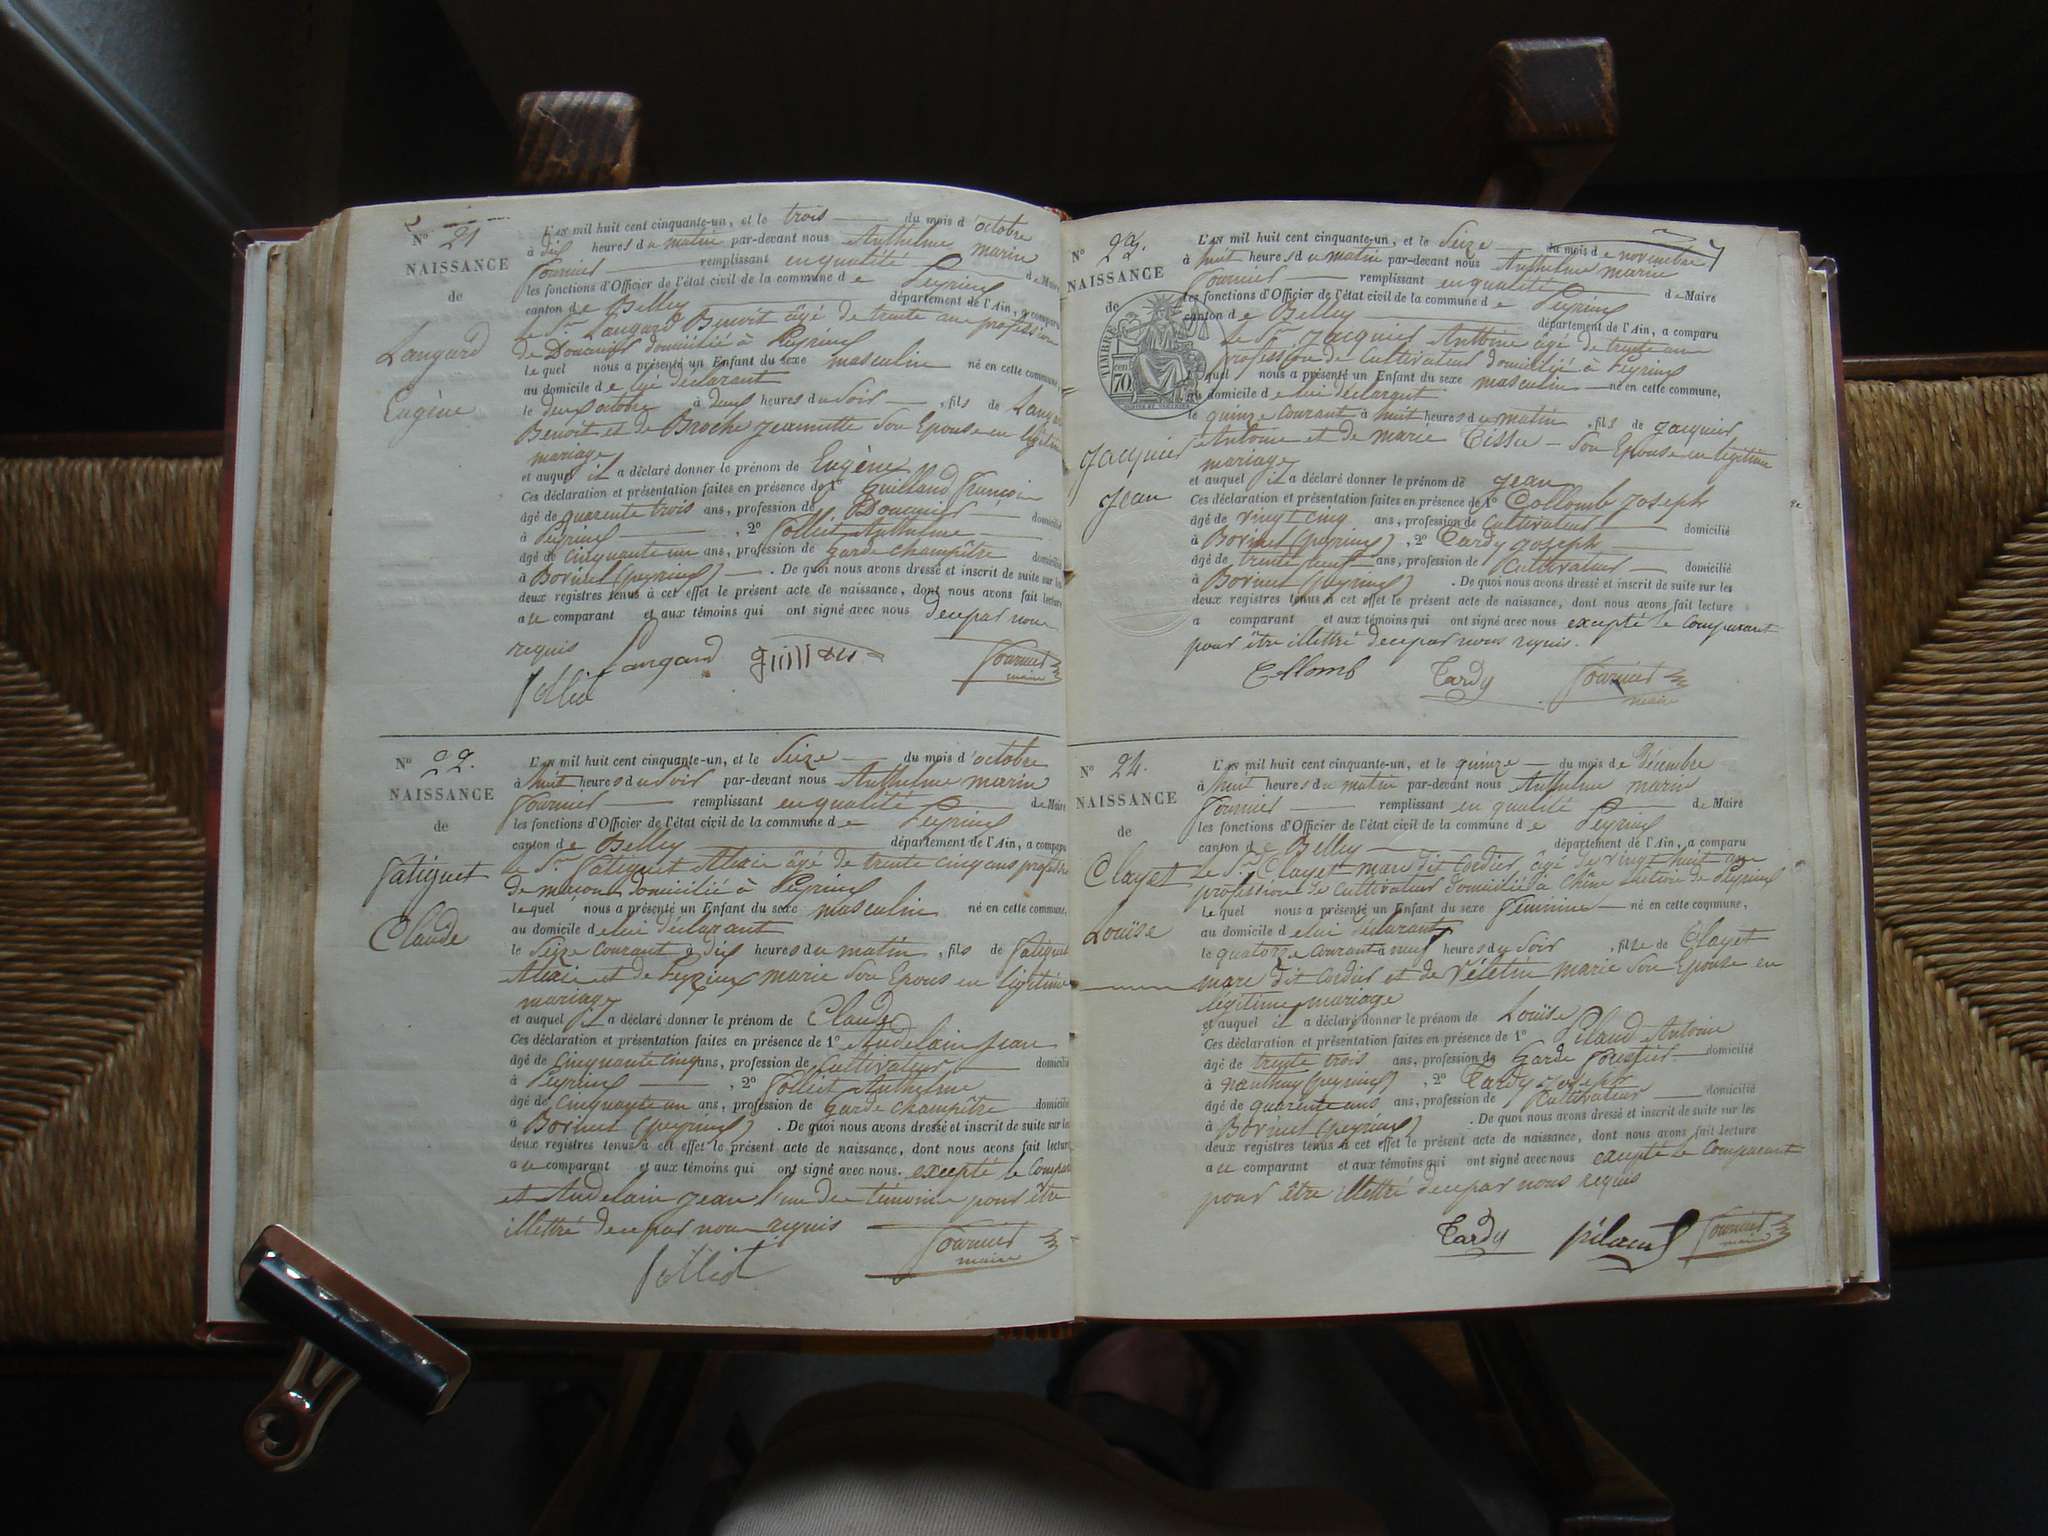 N° 21
NAISSANCE
de
Langard
Eugène
L'AN mil huit cent cinquante-un, et le trois du mois d'octobre
à dix heures du matin par-devant nous Anthelme marin
fournier remplissant en qualité de Maire
les fonctions d'Officier de l'état civil de la commune de Peyrieu
canton de Belley département de l'Ain, a comparu
le Sr Langard Benoit âgé de trente ans profession
de Douanier domicilié à Peyrieu
lequel nous a présenté un Enfant du sexe masculin né en cette commune,
au domicile de lui déclarant
le deux octobre à deux heures du soir, fils de Langard
Benoit et de Broche jeannette son Epouse en légitime
mariage
et auquel il a déclaré donner le prénom de Eugène
Ces déclaration et présentation faites en présence de 1° Guilland françois
âgé de quarente trois ans, profession de Douanier domicilié
à Peyrieu, 2° folliet Anthelme
âgé de cinquante un ans, profession de garde champêtre domicilié
à Bornet (peyrieu). De quoi nous avons dressé et inscrit de suite sur les
deux registres tenus à cet effet le présent acte de naissance, dont nous avons fait lecture
au comparant et aux témoins qui ont signé avec nous de ce par nous
requis
Langard
folliet fournier
maire
N° 22.
NAISSANCE
de
fatiguet
Claude
L'AN mil huit cent cinquante-un, et le Seize du mois d'octobre
à huit heures du soir par-devant nous Anthelme marin
fournier remplissant en qualité de Maire
les fonctions d'Officier de l'état civil de la commune de Peyrieu
canton de Belley département de l'Ain, a comparu
le Sr fatiguet Alexis âgé de trente cinq ans profession
de maçon domicilié à Peyrieu
lequel nous a présenté un Enfant du sexe masculin né en cette commune,
au domicile de lui déclarant
le Seize courant à dix heures du matin, fils de fatiguet
Alexis et de Peyrieux marie son Epouse en légitime
mariage
et auquel il a déclaré donner le prénom de Claude
Ces déclaration et présentation faites en présence de 1° Andelain jean
âgé de cinquante cinq ans, profession de cultivateur domicilié
à Peyrieu, 2° folliet Anthelme
âgé de cinquante un ans, profession de garde champêtre domicilié
à Bornet (peyrieu). De quoi nous avons dressé et inscrit de suite sur les
deux registres tenus à cet effet le présent acte de naissance, dont nous avons fait lecture
au comparant et aux témoins qui ont signé avec nous. excepté le Comparant
et Andelain jean l'un des témoins pour être
illettré de ce par nous requis
folliet fournier
maire
N° 23.
NAISSANCE
de
TIMBRE
70
jacquier
jean
L'AN mil huit cent cinquante-un, et le Seize du mois de novembre
à huit heures du matin par-devant nous Anthelme marin
fournier remplissant en qualité de Maire
les fonctions d'Officier de l'état civil de la commune de Peyrieu
canton de Belley département de l'Ain, a comparu
le Sr jacquier Antoine âgé de trente ans
profession de cultivateur domicilié à Peyrieu
lequel nous a présenté un Enfant du sexe masculin né en cette commune,
au domicile de lui déclarant
le quinze courant à huit heures du matin, fils de jacquier
Antoine et de marie Tissu son Epouse en légitime
mariage
et auquel il a déclaré donner le prénom de jean
Ces déclaration et présentation faites en présence de 1° Collomb joseph
âgé de vingt cinq ans, profession de cultivateur domicilié
à Bornet (peyrieu), 2° Tardy joseph
âgé de trente neuf ans, profession de cultivateur domicilié
à Bornet (peyrieu). De quoi nous avons dressé et inscrit de suite sur les
deux registres tenus à cet effet le présent acte de naissance, dont nous avons fait lecture
a comparant et aux témoins qui ont signé avec nous excepté le comparant
pour être illettré de ce par nous requis.
Collomb Tardy fournier
maire
N° 24.
NAISSANCE
de
Clayet
Louïse
L'AN mil huit cent cinquante-un, et le quinze du mois de Décembre
à huit heures du matin par-devant nous Anthelme marin
fournier remplissant en qualité de Maire
les fonctions d'Officier de l'état civil de la commune de Peyrieu
canton de Belley département de l'Ain, a comparu
le Sr Clayet marc dit Cordier âgé de vingt huit ans
profession de cultivateur domicilié à Chêne section de Peyrieu
lequel nous a présenté un Enfant du sexe féminine né en cette commune,
au domicile de lui déclarant
le quatorze courant à neuf heures du soir, fille de Clayet
marc dit Cordier et de Vételin marie son Epouse en
légitime mariage
et auquel il a déclaré donner le prénom de Louïse
Ces déclaration et présentation faites en présence de 1° Pilaud Antoine
âgé de trente trois ans, profession de garde forestier domicilié
à nanthuy (peyrieu), 2° Tardy joseph
âgé de quarente ans ans, profession de cultivateur domicilié
à Bornet (peyrieu). De quoi nous avons dressé et inscrit de suite sur les
deux registres tenus à cet effet le présent acte de naissance, dont nous avons fait lecture
au comparant et aux témoins qui ont signé avec nous excepté le comparant
pour être illettré de ce par nous requis
Tardy pilaud fournier
maire